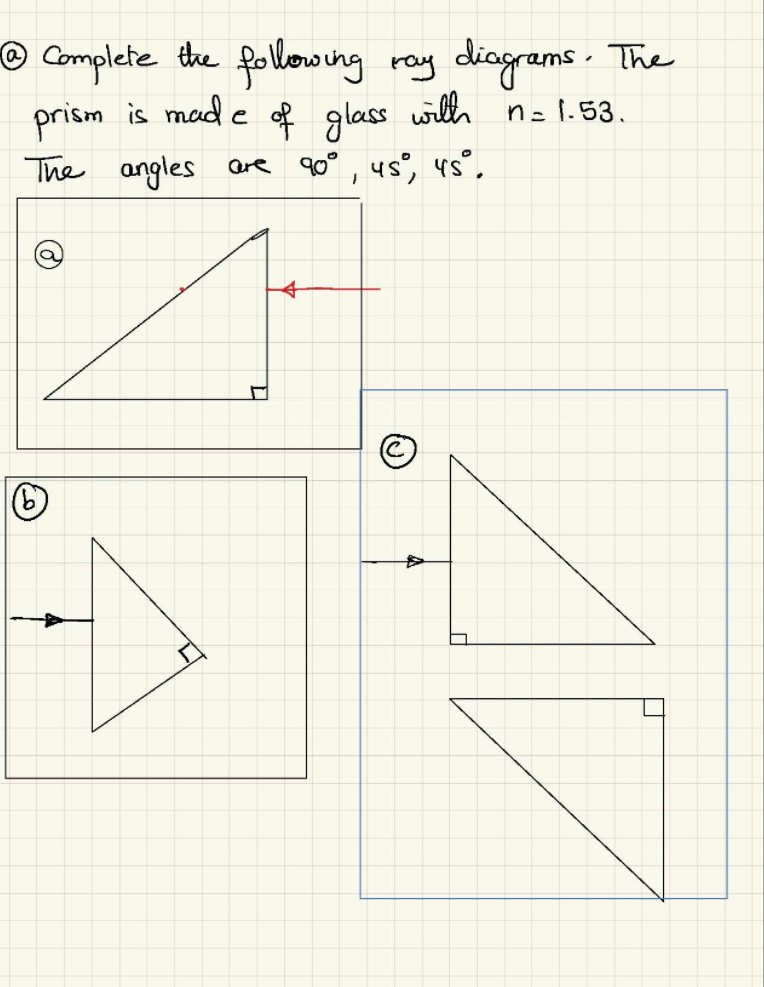 ⓐ Complete the following ray diagrams. The
prism is made of glass with n = 1.53.
The angles are 90°, 45°, 45°.
ⓐ
ⓑ
ⓒ